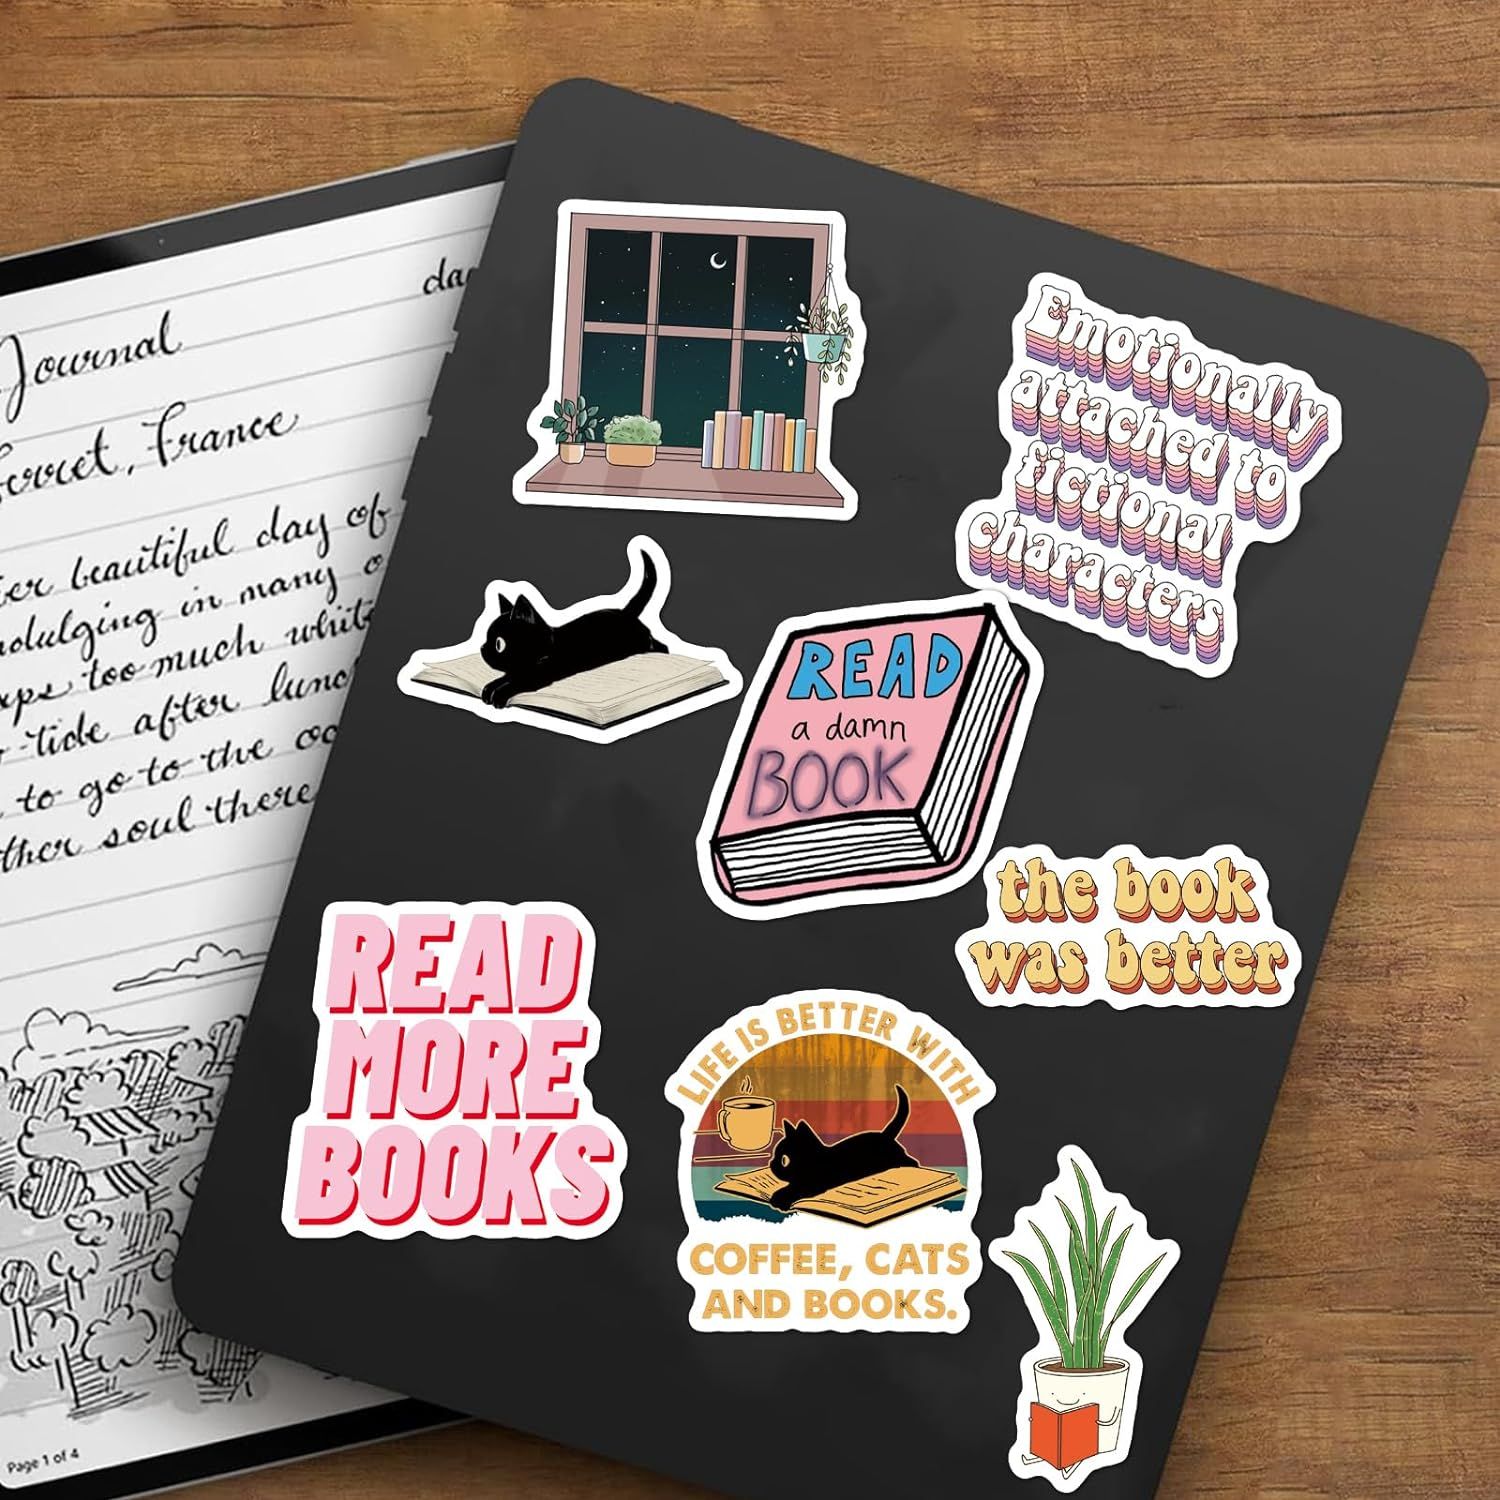 Journal
France
beautiful day of
indulging in many
too much
-tide after
to go to the
soul there
Page 1 of 4
Emotionally
attached to
fictional
characters
READ
a damn
BOOK
the book
was better
READ
MORE
BOOKS
LIFE IS BETTER WITH
COFFEE, CATS
AND BOOKS.